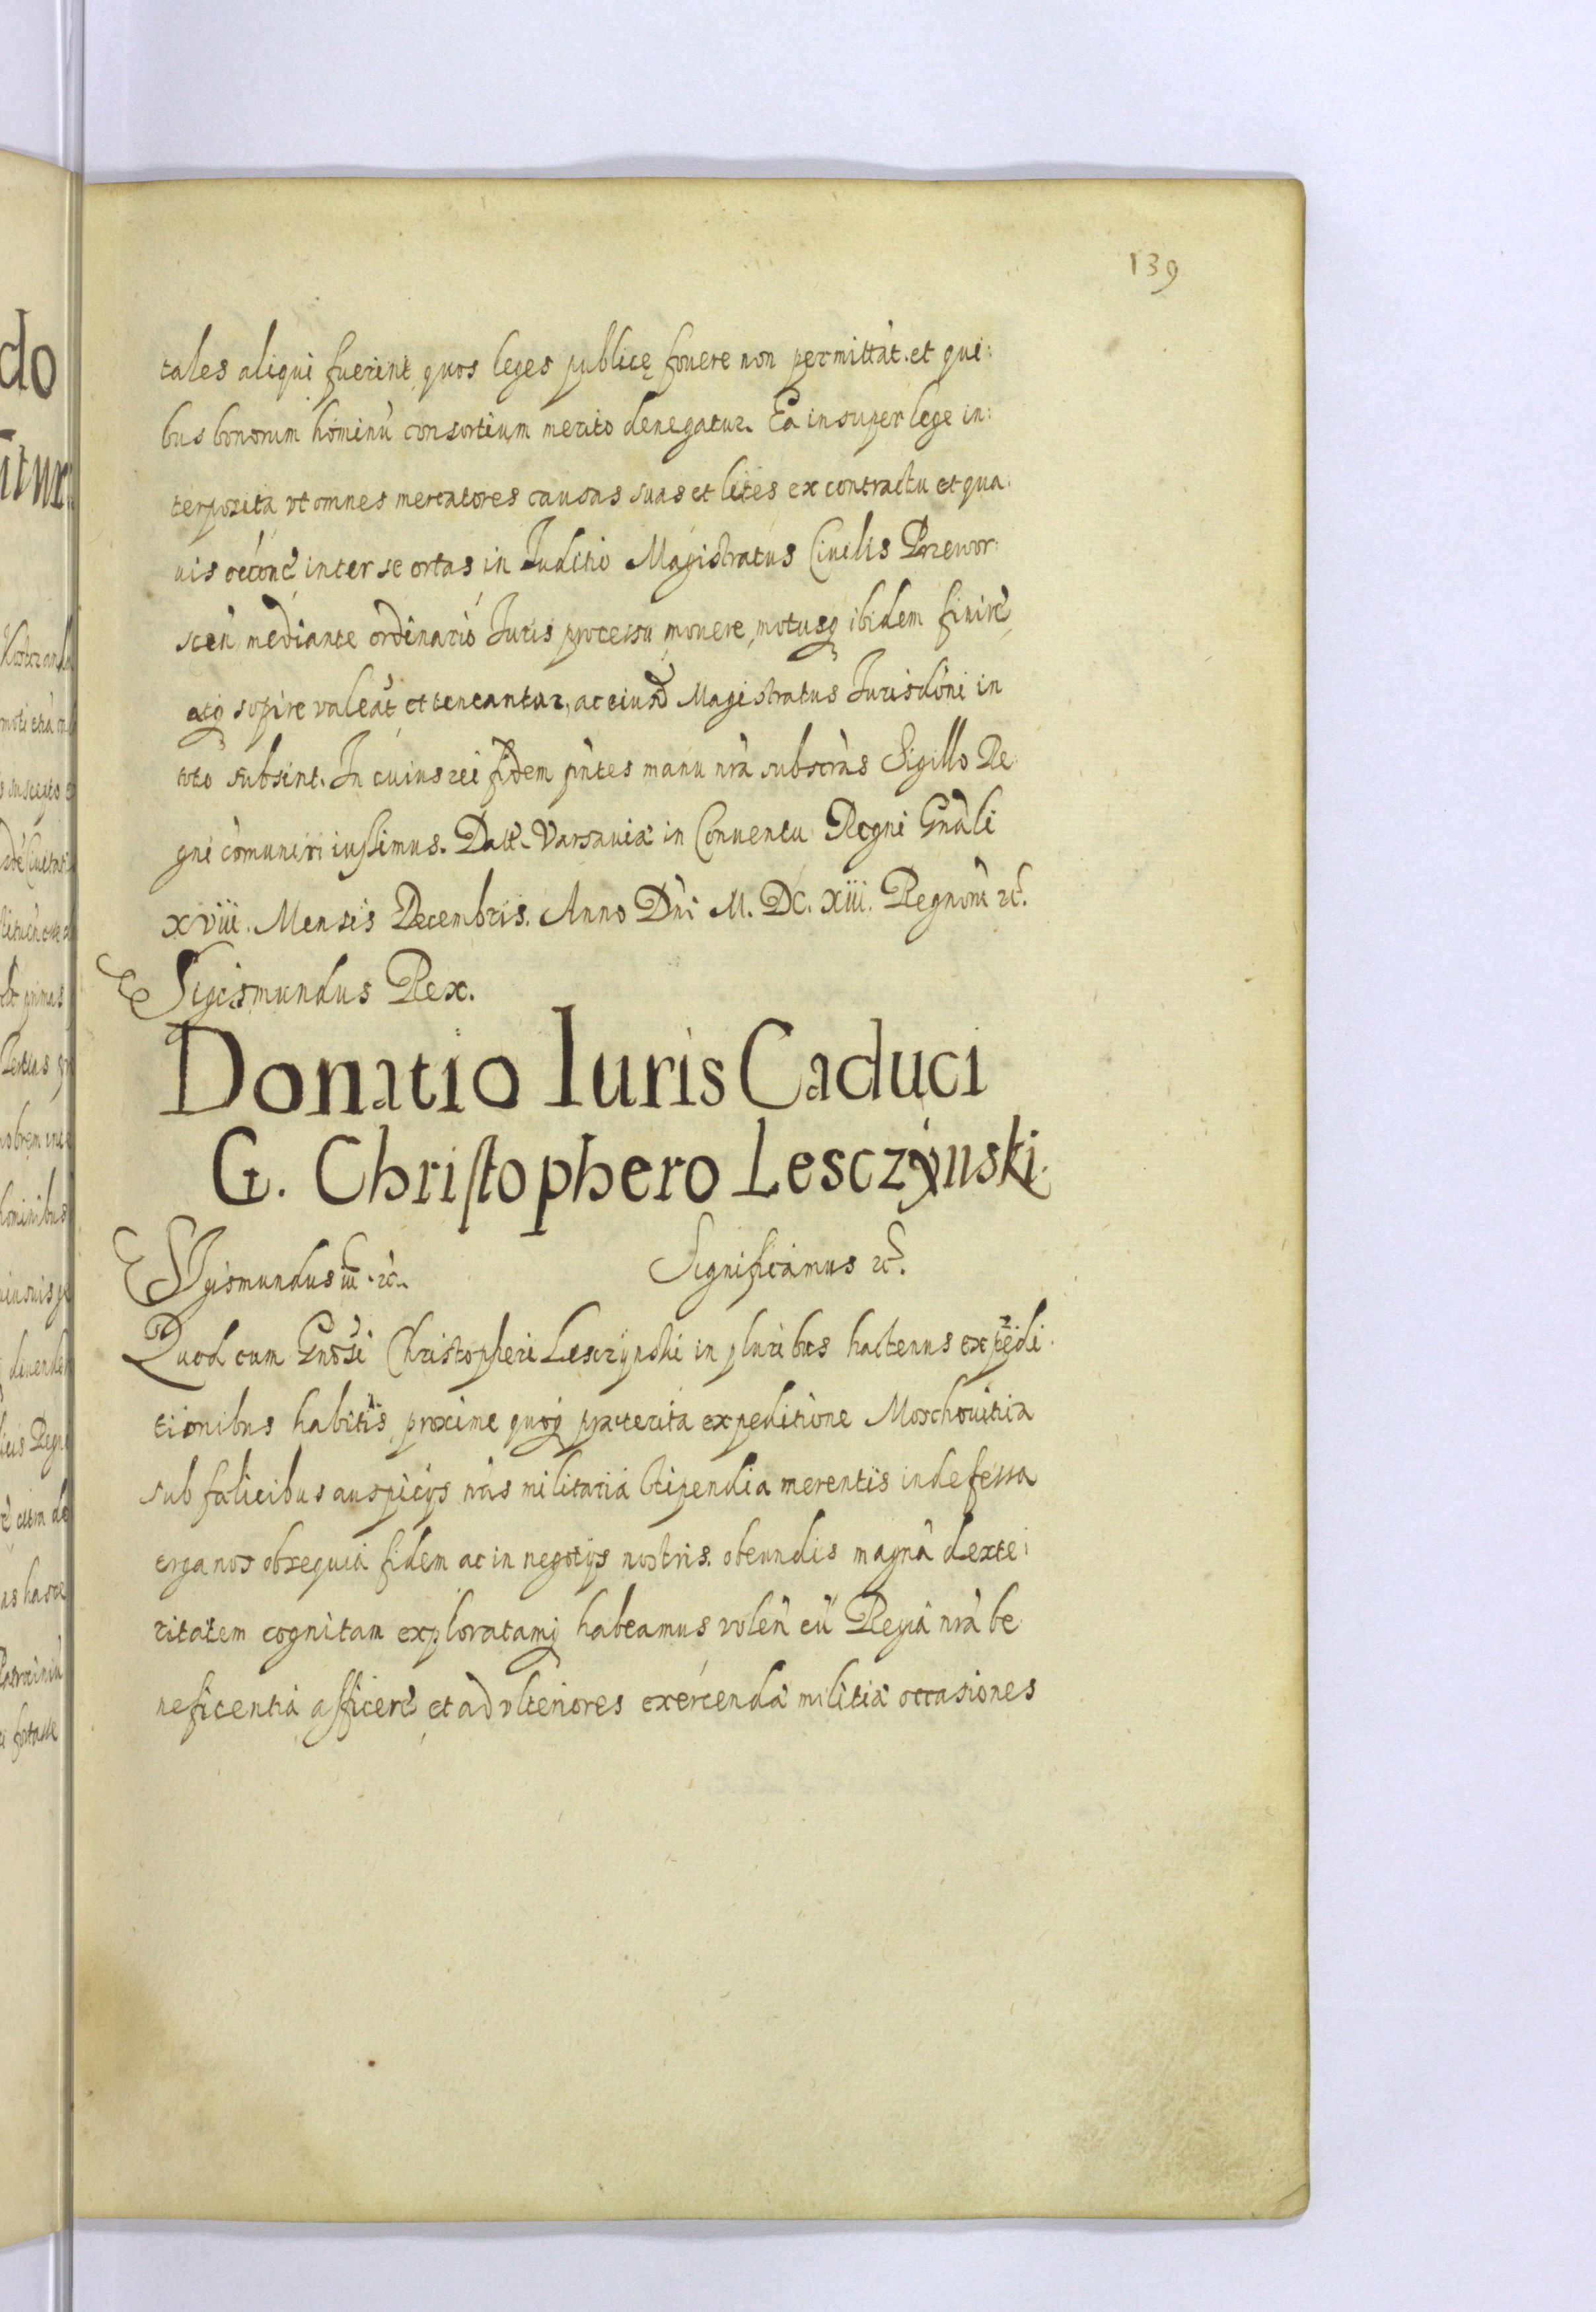 139
tales aliqui fuerint quos leges publicę fouere non permittāt. et qui:
bus bonorum hominū consortium merito denegatur. Ea insuper lege in:
terposita vt omnes mercatores causas suas et lites ex contractu et qua:
uis occōne inter se ortas in Iuditio Magistratus Ciuilis Przewor:
scen̄ mediante ordinario Iuris processu mouere, motusq̃ ibidem finire
atq̃ sopire valeāt et teneantur, ac eiusd̄ Magistratus Iurisdōni in
toto subsint. In cuius rei fidem p̄ntes manu n̄rā subscr̄as Sigillo Re:
gni com̄uniri iussimus. Datt. Varsauiæ in Conuentu Regni Gn̄ali
XVIII. Mensis Decembris. Anno Dn̄i M. DC. XIII. Regnorū &c.
Sigismundus Rex.
Donatio Iuris Caduci
G. Christophero Lesczẏnski.
SIgismundus III. &c. Significamus &c.
Quod cum Gn̄osi Christopheri Lesczynski in pluribus hactenus expedi:
tionibus habitis, proxime quoq̃ præterita expeditione Moschouitica
sub fælicibus auspicijs n̄ris militaria stipendia merentis indefessa
erga nos obsequia fidem ac in negotijs nostris obeundis magnā dexte:
ritatem cognitam exploratamq̃ habeamus volen̄ eū Regiâ n̄râ be
neficentiâ afficere et ad vlteriores exercendæ militiæ occasiones